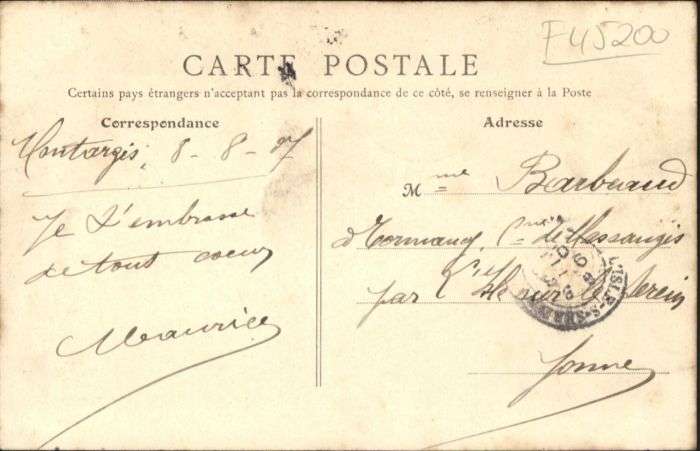 F45200
CARTE POSTALE
Certains pays étrangers n'acceptent pas la correspondance de ce côté, se renseigner à la Poste
Correspondance
Montargis, 8-8-07
Je t'embrasse
de tout coeur
Maurice
Adresse
Mme Barbuaud
d'Tormancy, Cne de Massangis
par L'Isle sur le Serein
Yonne
L'ISLE-S-SEREIN